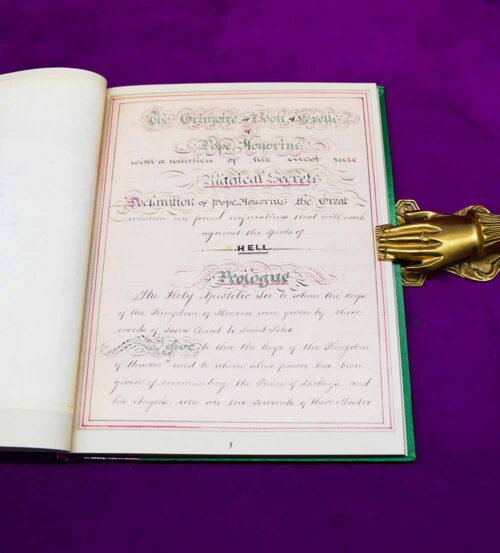 The Grimoire or Book of Spells
of
Pope Honorius
with a collection of the most rare
Magical Secrets
Declaration of Pope Honorius the Great
wherein are found conjurations that will work
against the spirits of
HELL.
Prologue
The Holy Apostolic See to whom the keys
of the Kingdom of Heaven were given by these
words of Jesus Christ to Saint
I give to thee the keys of the Kingdom
of Heaven and to whom alone power has been
given of commanding the Prince of darkness and
his Angels who are the servants of their Master
5